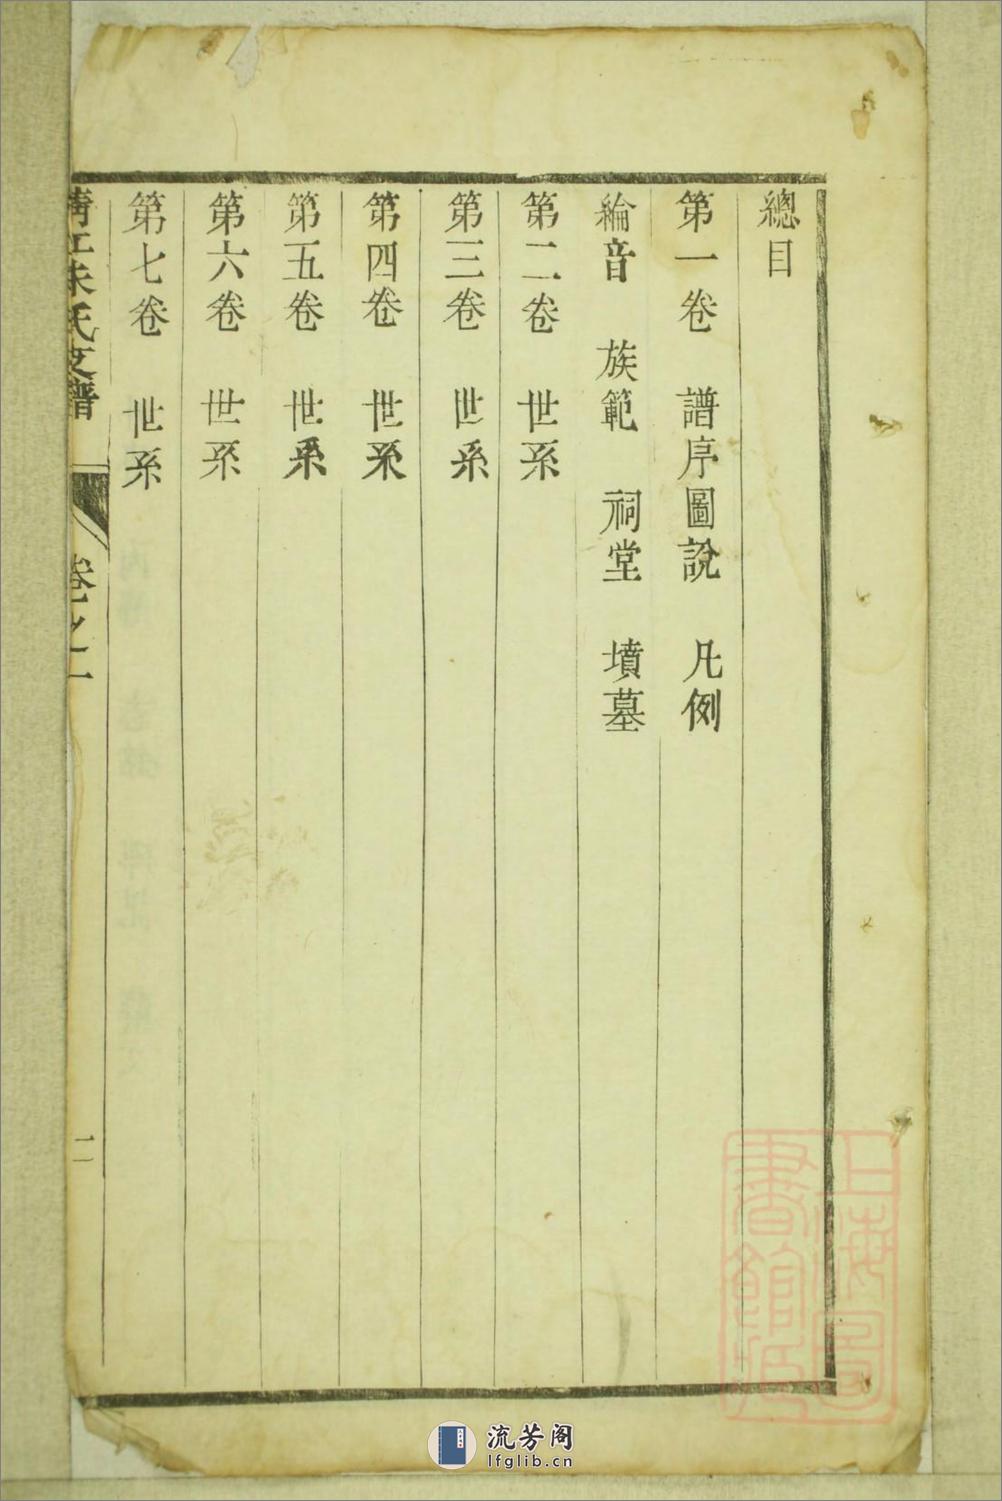 總目
第一卷 譜序圖說 凡例
綸音 族範 祠堂 墳墓
第二卷 世系
第三卷 世系
第四卷 世系
第五卷 世系
第六卷 世系
第七卷 世系
朱氏支譜 卷之一 二
上海圖書館藏
流芳阁
lfglib.cn